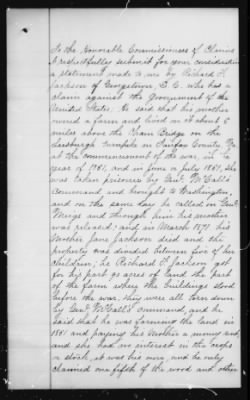 To the Honorable Commissioners of Claims
I respectfully submit for your consideration
a statement made to me by Richard T.
Jackson of Georgetown, D. C. who has a
claim against the Government of the
United States. He said that his mother
owned a farm and lived on it about 6
miles above the Chain Bridge on the
Leesburgh turnpike in Fairfax County Va
at the commencement of the war, in
year of 1861, and in June or July 1861, she
was taken prisoner by Genl McCall's
command and brought to Washington,
and on the same day he called on Genl
Meigs and through him his mother
was released; and in March 1871 his
Mother Jane Jackson died and the
property was divided between five of her
children; he Richard T. Jackson got
for his part 90 acres of land the part
of the farm where the buildings stood
before the war. they were all torn down
by Genl McCall's command, and he
said that he was farming the land in
1861 and paying his Mother a money rent
and she had no interest in the crops
or stock, it was his own, and he only
claimed one fifth of the wood and other